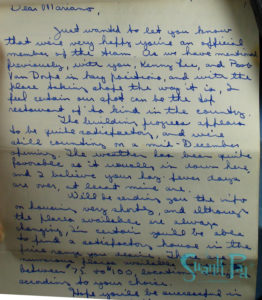 Dear Mariano,
Just wanted to let you know
that we're very happy you're an official
member of the team. As we have mentioned
previously, with you, Kenny Lee, and
Van Dorpe in key positions, and with the
place taking shape the way it is, I
feel certain our spot can be the top
restaurant of its kind in the country.
The building progress appears
to be quite satisfactory, and we're
still counting on a mid-December
opening. The weather has been quite
favorable as it usually is down here,
and I believe your hay fever days
are over, at least mine are.
Will be sending you the info
on housing very shortly, and although
the places available are always
changing, I'm certain you'll be able
to find a satisfactory house in the
area you desire. There are
numerous places available
between 75 to $100, location
according to your choice.
Hope you'll be successful in